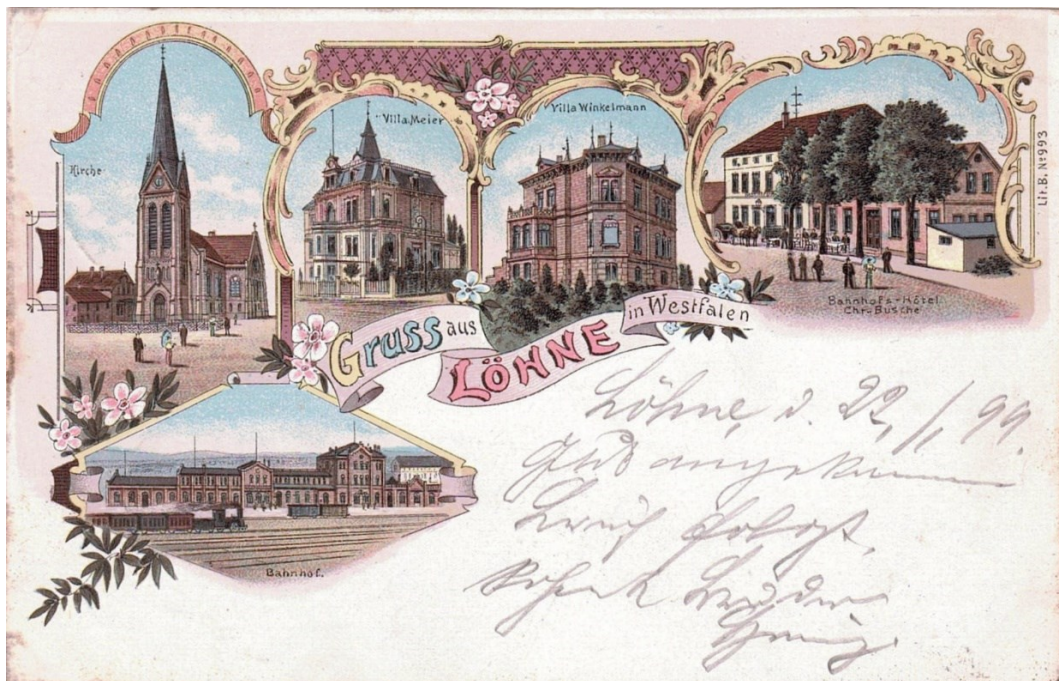 Kirche
Villa Meier
Villa Winkelmann
Bahnhofs-Hôtel
Chr. Busche
Lit. B. No 993
Gruss aus
LÖHNE
in Westfalen
Bahnhof.
Löhne, d. 22/1 99
Gut angekommen
Brief folgt.